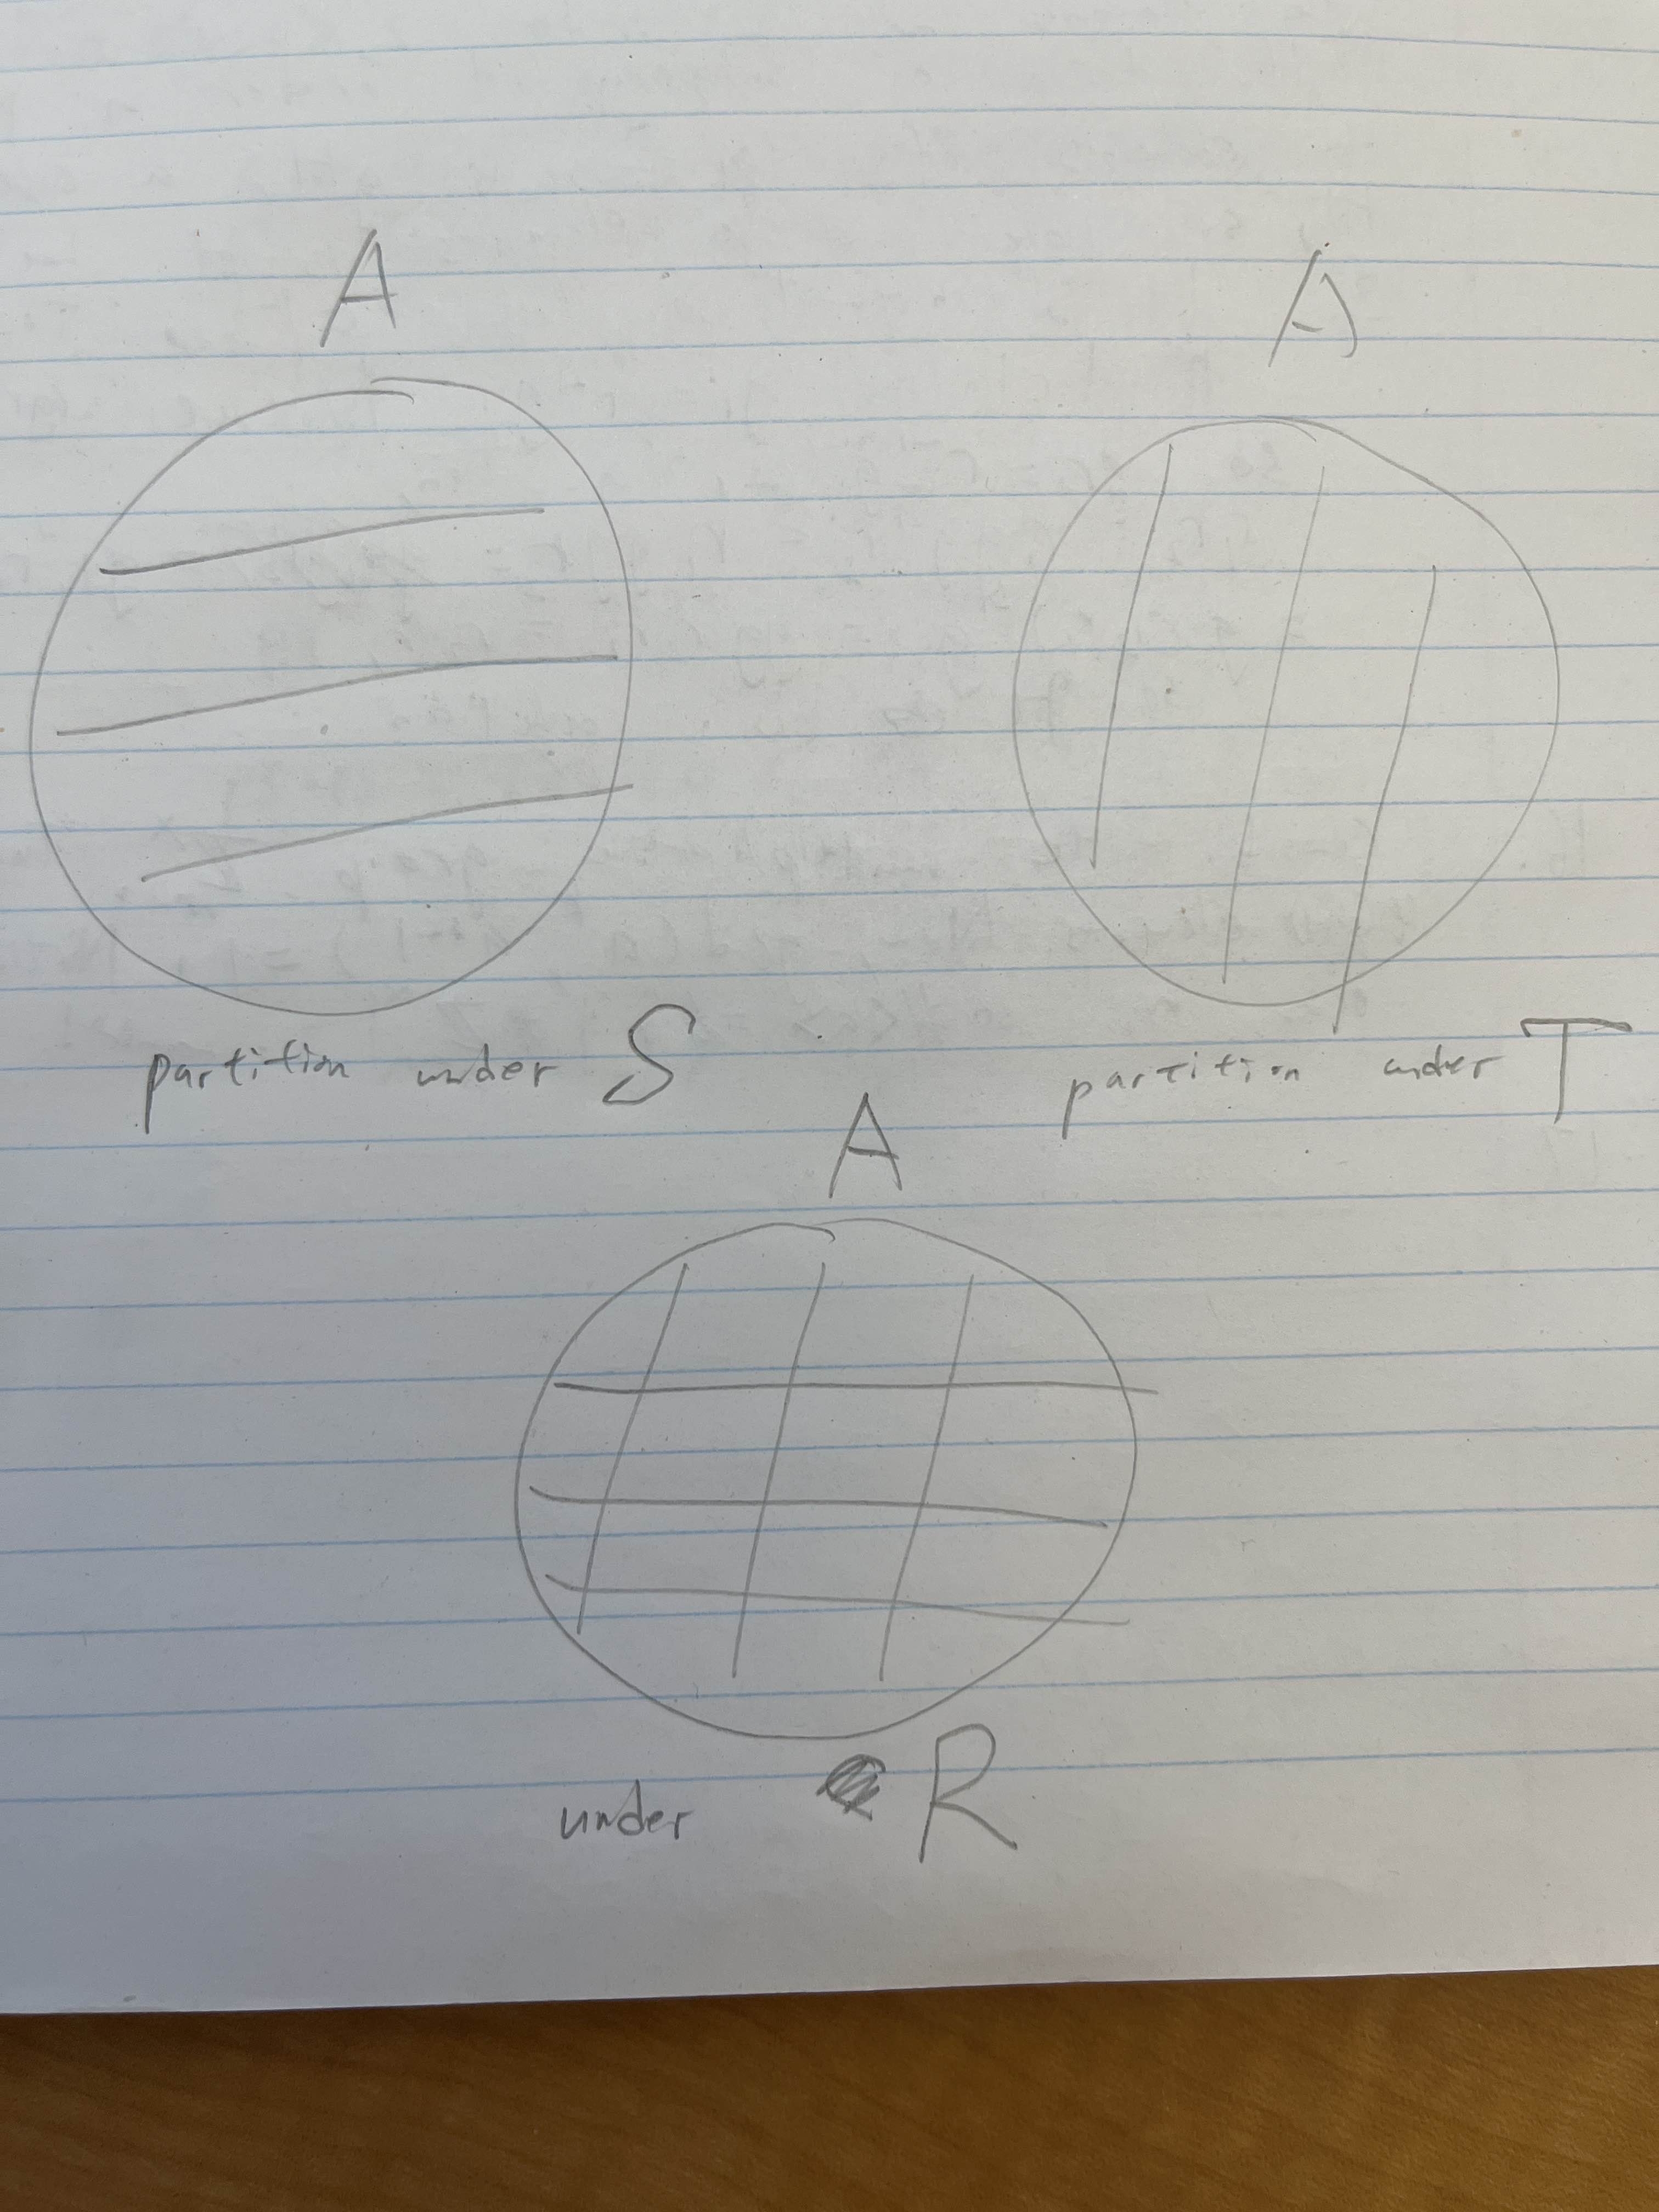 A A
partition under S partition under T
A
under R